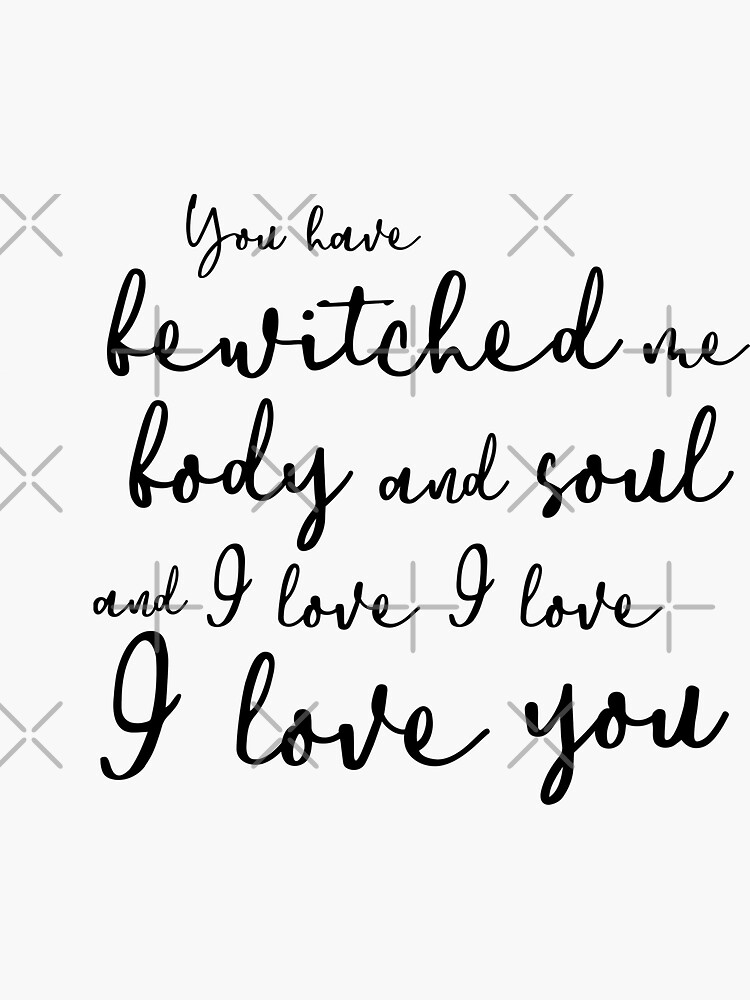 You have
bewitched me
body and soul
and I love I love
I love you